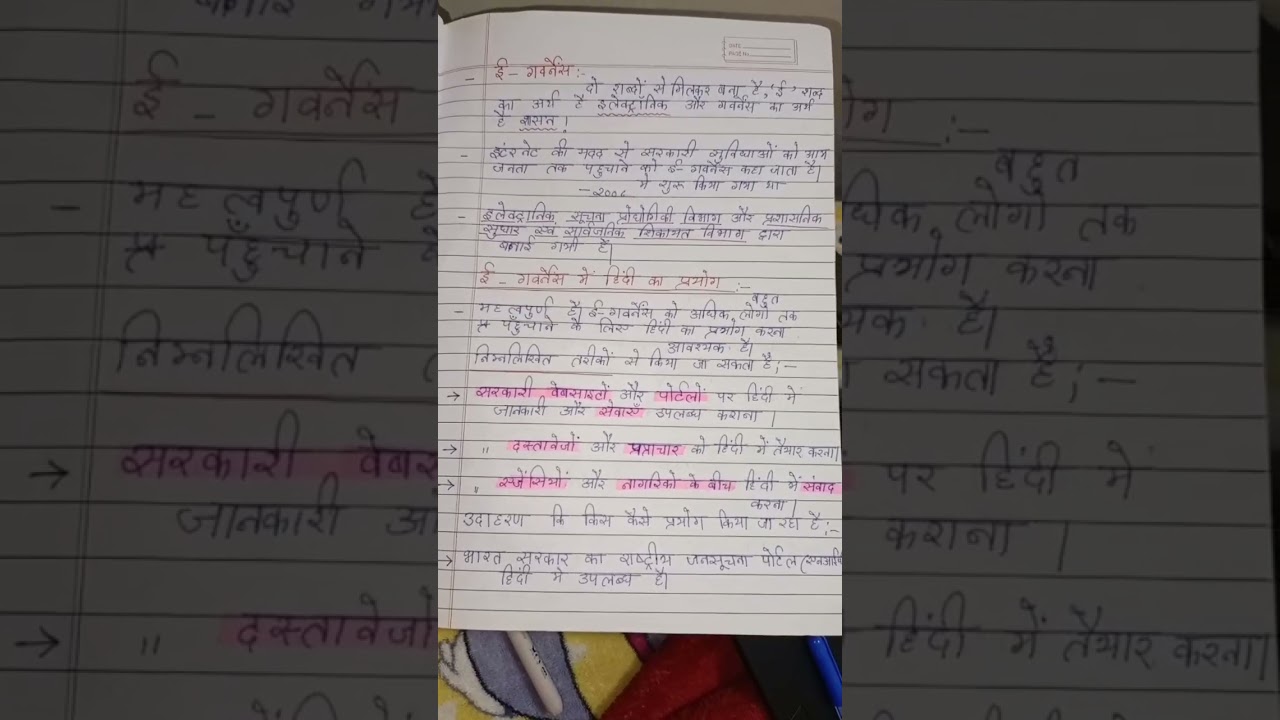 DATE
PAGE No.
ई - गवर्नेंस :-
दो शब्दों से मिलकर बना है, 'ई' शब्द
का अर्थ है इलेक्ट्रॉनिक और गवर्नेंस का अर्थ
है शासन।
- इंटरनेट की मदद से सरकारी सुविधाओं को आम
जनता तक पहुचाने को ई- गवर्नेंस कहा जाता है।
में शुरू किया गया था
- इलेक्ट्रानिक सूचना प्रोद्योगिकी विभाग और प्रशासनिक
सुधार एवं सार्वजनिक शिकायत विभाग द्वारा
बनाई गयी है।
ई - गवर्नेंस में हिंदी का प्रयोग :-
बहुत
- महत्वपुर्ण है। ई-गवर्नेंस को अधिक लोगों तक
पहुँचाने के लिए हिंदी का प्रयोग करना
आवश्यक है।
निम्नलिखित तरीकों से किया जा सकता है;-
→ सरकारी वेबसाइटों और पोर्टलों पर हिंदी में
जानकारी और सेवाएँ उपलब्ध कराना।
→ " दस्तावेजों और पत्राचार को हिंदी में तैयार करना।
→ " एजेंसियों और नागरिकों के बीच हिंदी में संवाद
करना।
उदाहरण कि किस कैसे प्रयोग किया जा रहा है;-
→ भारत सरकार का राष्ट्रीय जनसूचना पोर्टल
हिंदी में उपलब्ध है।